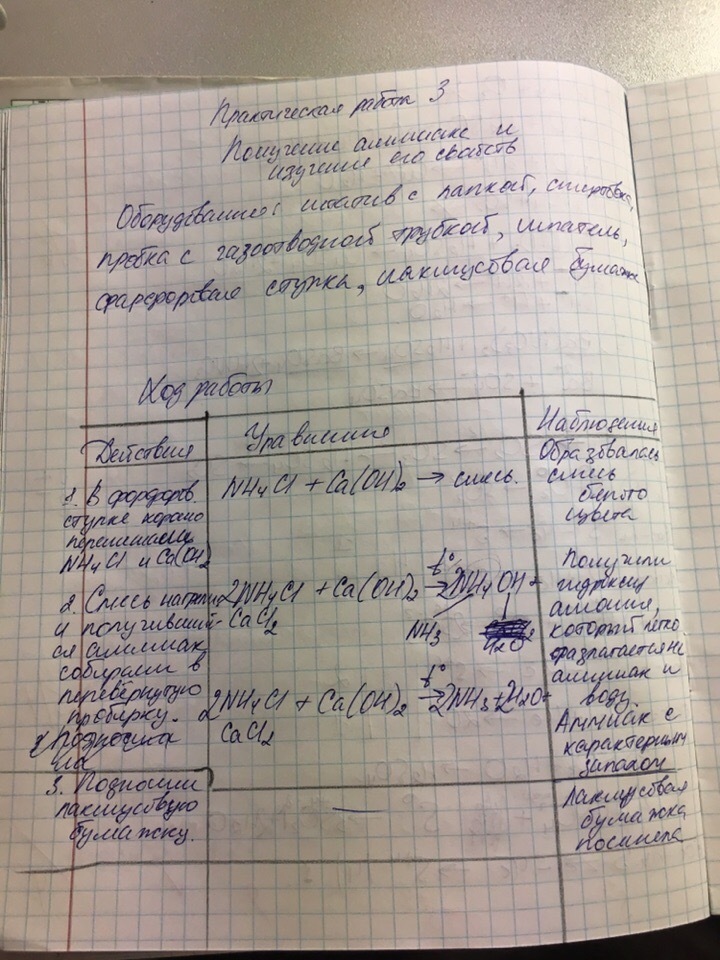 Практическая работа 3
Получение аммиака и
изучение его свойств
Оборудование: штатив с лапкой,
пробка с газоотводной трубкой, шпатель,
фарфоровая ступка, лакмусовая бумажка
Ход работы
Действия
Уравнение
Наблюдения
1. В фарфоров.
ступке хорошо
перемешали
NH4Cl и Ca(OH)2
NH4Cl + Ca(OH)2 → смесь.
Образовалась
смесь
белого
цвета
2. Смесь нагрели
и получивший-
ся аммиак
собирали в
перевёрнутую
пробирку.
2NH4Cl + Ca(OH)2 t° → 2NH4OH +
CaCl2
NH3
H2O
2NH4Cl + Ca(OH)2 t° → 2NH3 + 2H2O +
CaCl2
Получили
гидроксид
амония,
который легко
разлагается на
аммиак и
воду
Аммиак с
характерным
запахом
3. Подносим
лакмусовую
бумажку.
—
Лакмусовая
бумажка
посинела